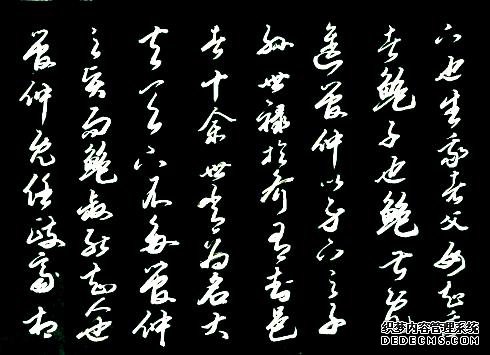 六也生我者父母知我
者鲍子也鲍叔既
進管仲以身下之子
孙世禄於齐有封邑
者十余世常为名大
夫天下不多管仲
之贤而鲍叔能知人也
管仲既任政齐相
织梦内容管理系统
DEDECMS.COM